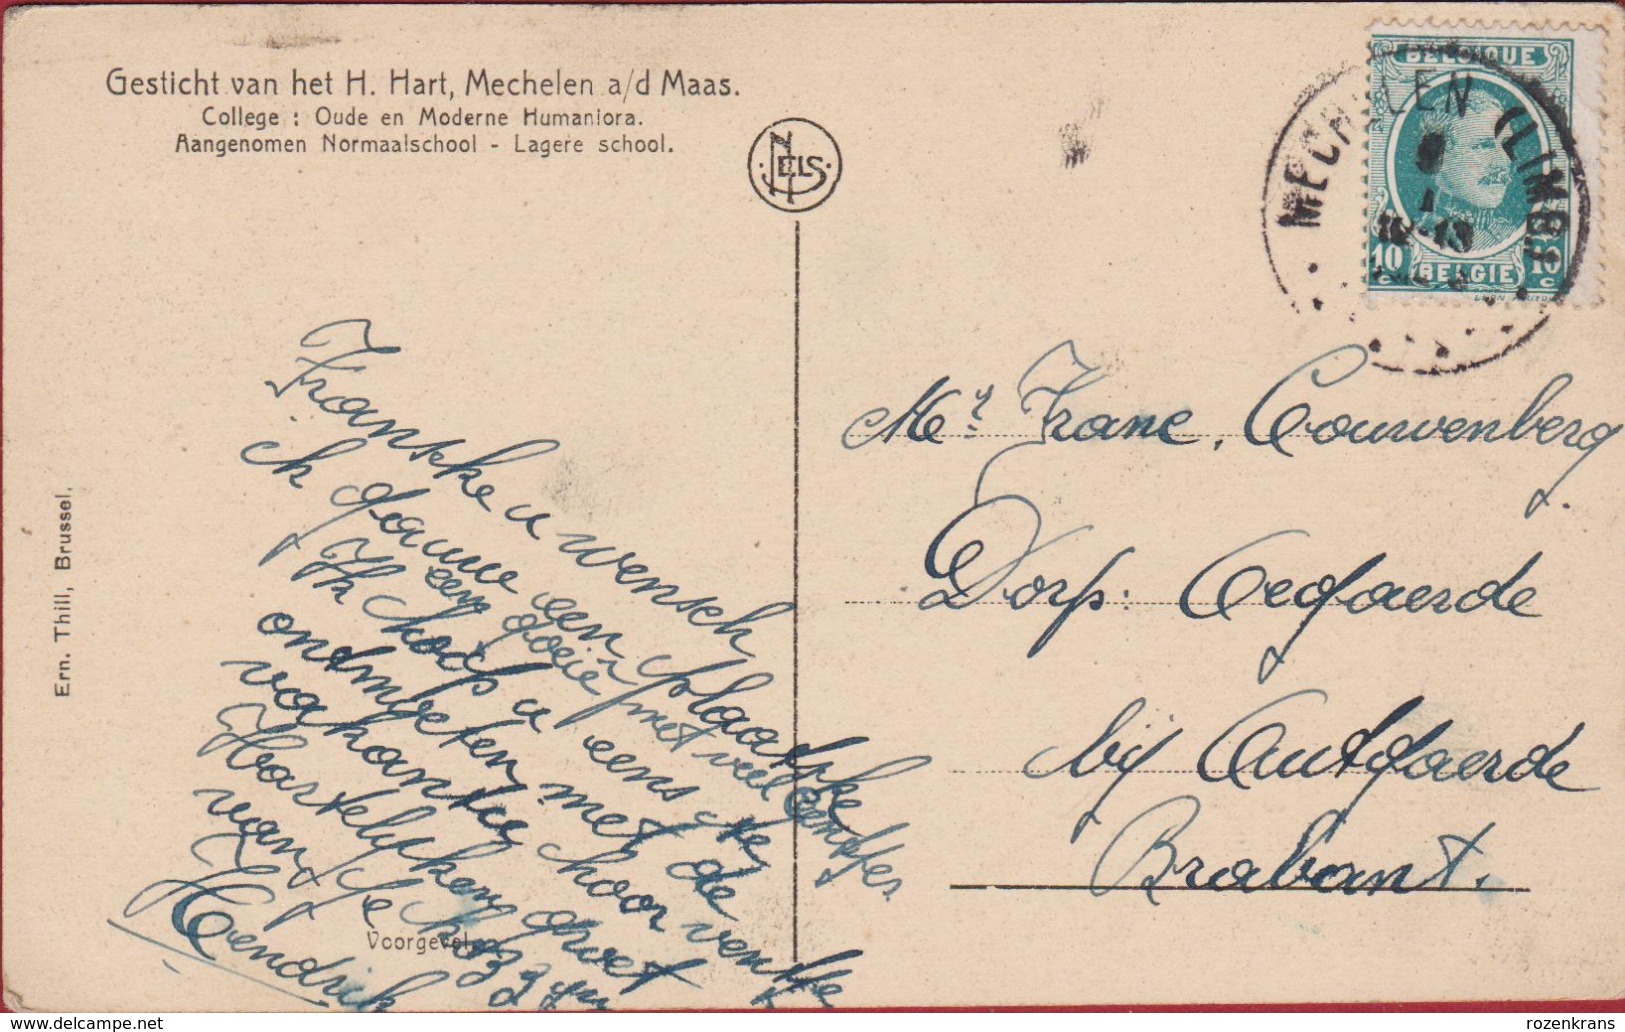 Gesticht van het H. Hart, Mechelen a/d Maas.
College : Oude en Moderne Humaniora.
Aangenomen Normaalschool - Lagere school.
NELS
BELGIQUE
MECHELEN (LIMB)
9
12-13
10 c BELGIE 10 c
Franske u wensch
ik gauw een plaatske
een goeie met veel centjes
Ik hoop u eens te
ontmoeten met de
vakantie hoor ventje
Hartelijken groet
van Je kozzyn
Hendrik
Voorgevel.
Ern. Thill, Brussel.
Mr. Franc. Couwenberg
Dorp: Oegaerde
bij Autgaerde
Brabant.
www.delcampe.net
rozenkrans